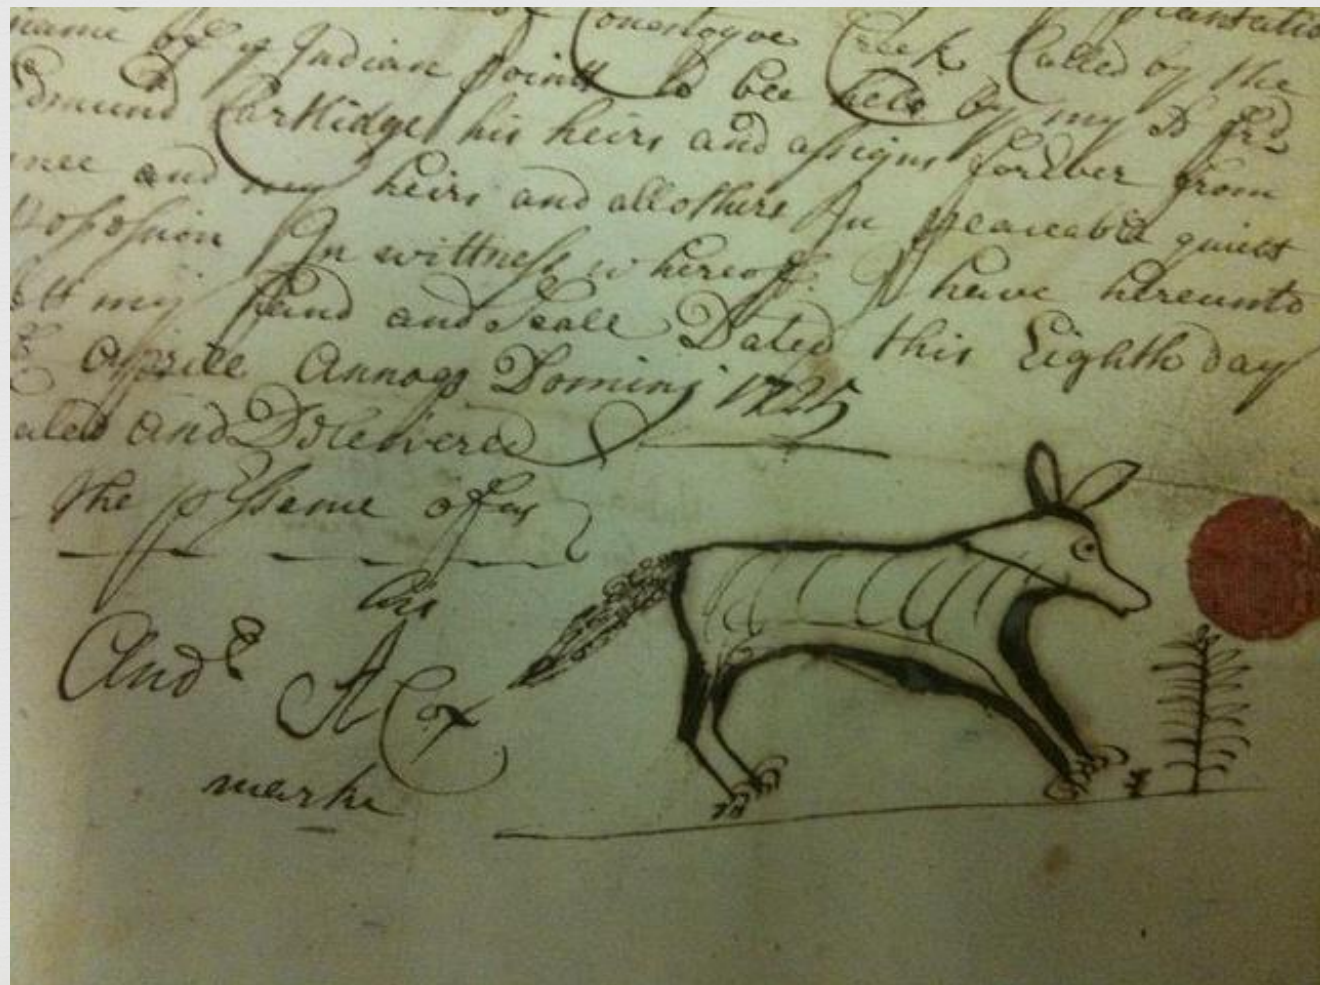 Plantatio
name of ye Indian pointt Conestogoe Creek Called by the
Edmund Cartlidge to bee held by my Sd frd
his heirs and assigns forever from
mee and my heirs and all others In peaceable quiett
Possession In wittness whereof I have hereunto
sett my hand and Seale Dated this Eighth day
Aprill Annoqe Dominj 1725
ealed and Delewered
the pssence of us
his
Andr A Cox
marke